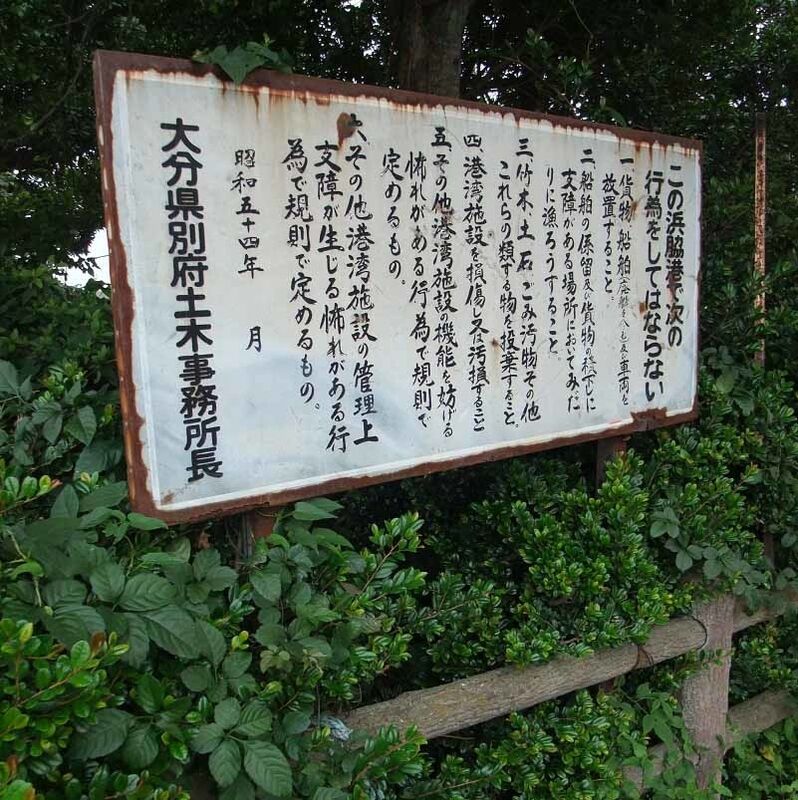 この浜脇港で次の
行為をしてはならない
一、貨物、船舶 車両を
放置すること。
二、船舶の係留及び貨物の積下しに
支障がある場所においてみだ
りに漁ろうすること、
三、竹木、土石、ごみ汚物その他
これらの類する物を投棄すること、
四、港湾施設を損傷し又は汚損すること
五、その他港湾施設の機能を妨げる
怖れがある行為で規則で
定めるもの。
六、その他港湾施設の管理上
支障が生じる怖れがある行
為で規則で定めるもの。
昭和五十四年　月
大分県別府土木事務所長